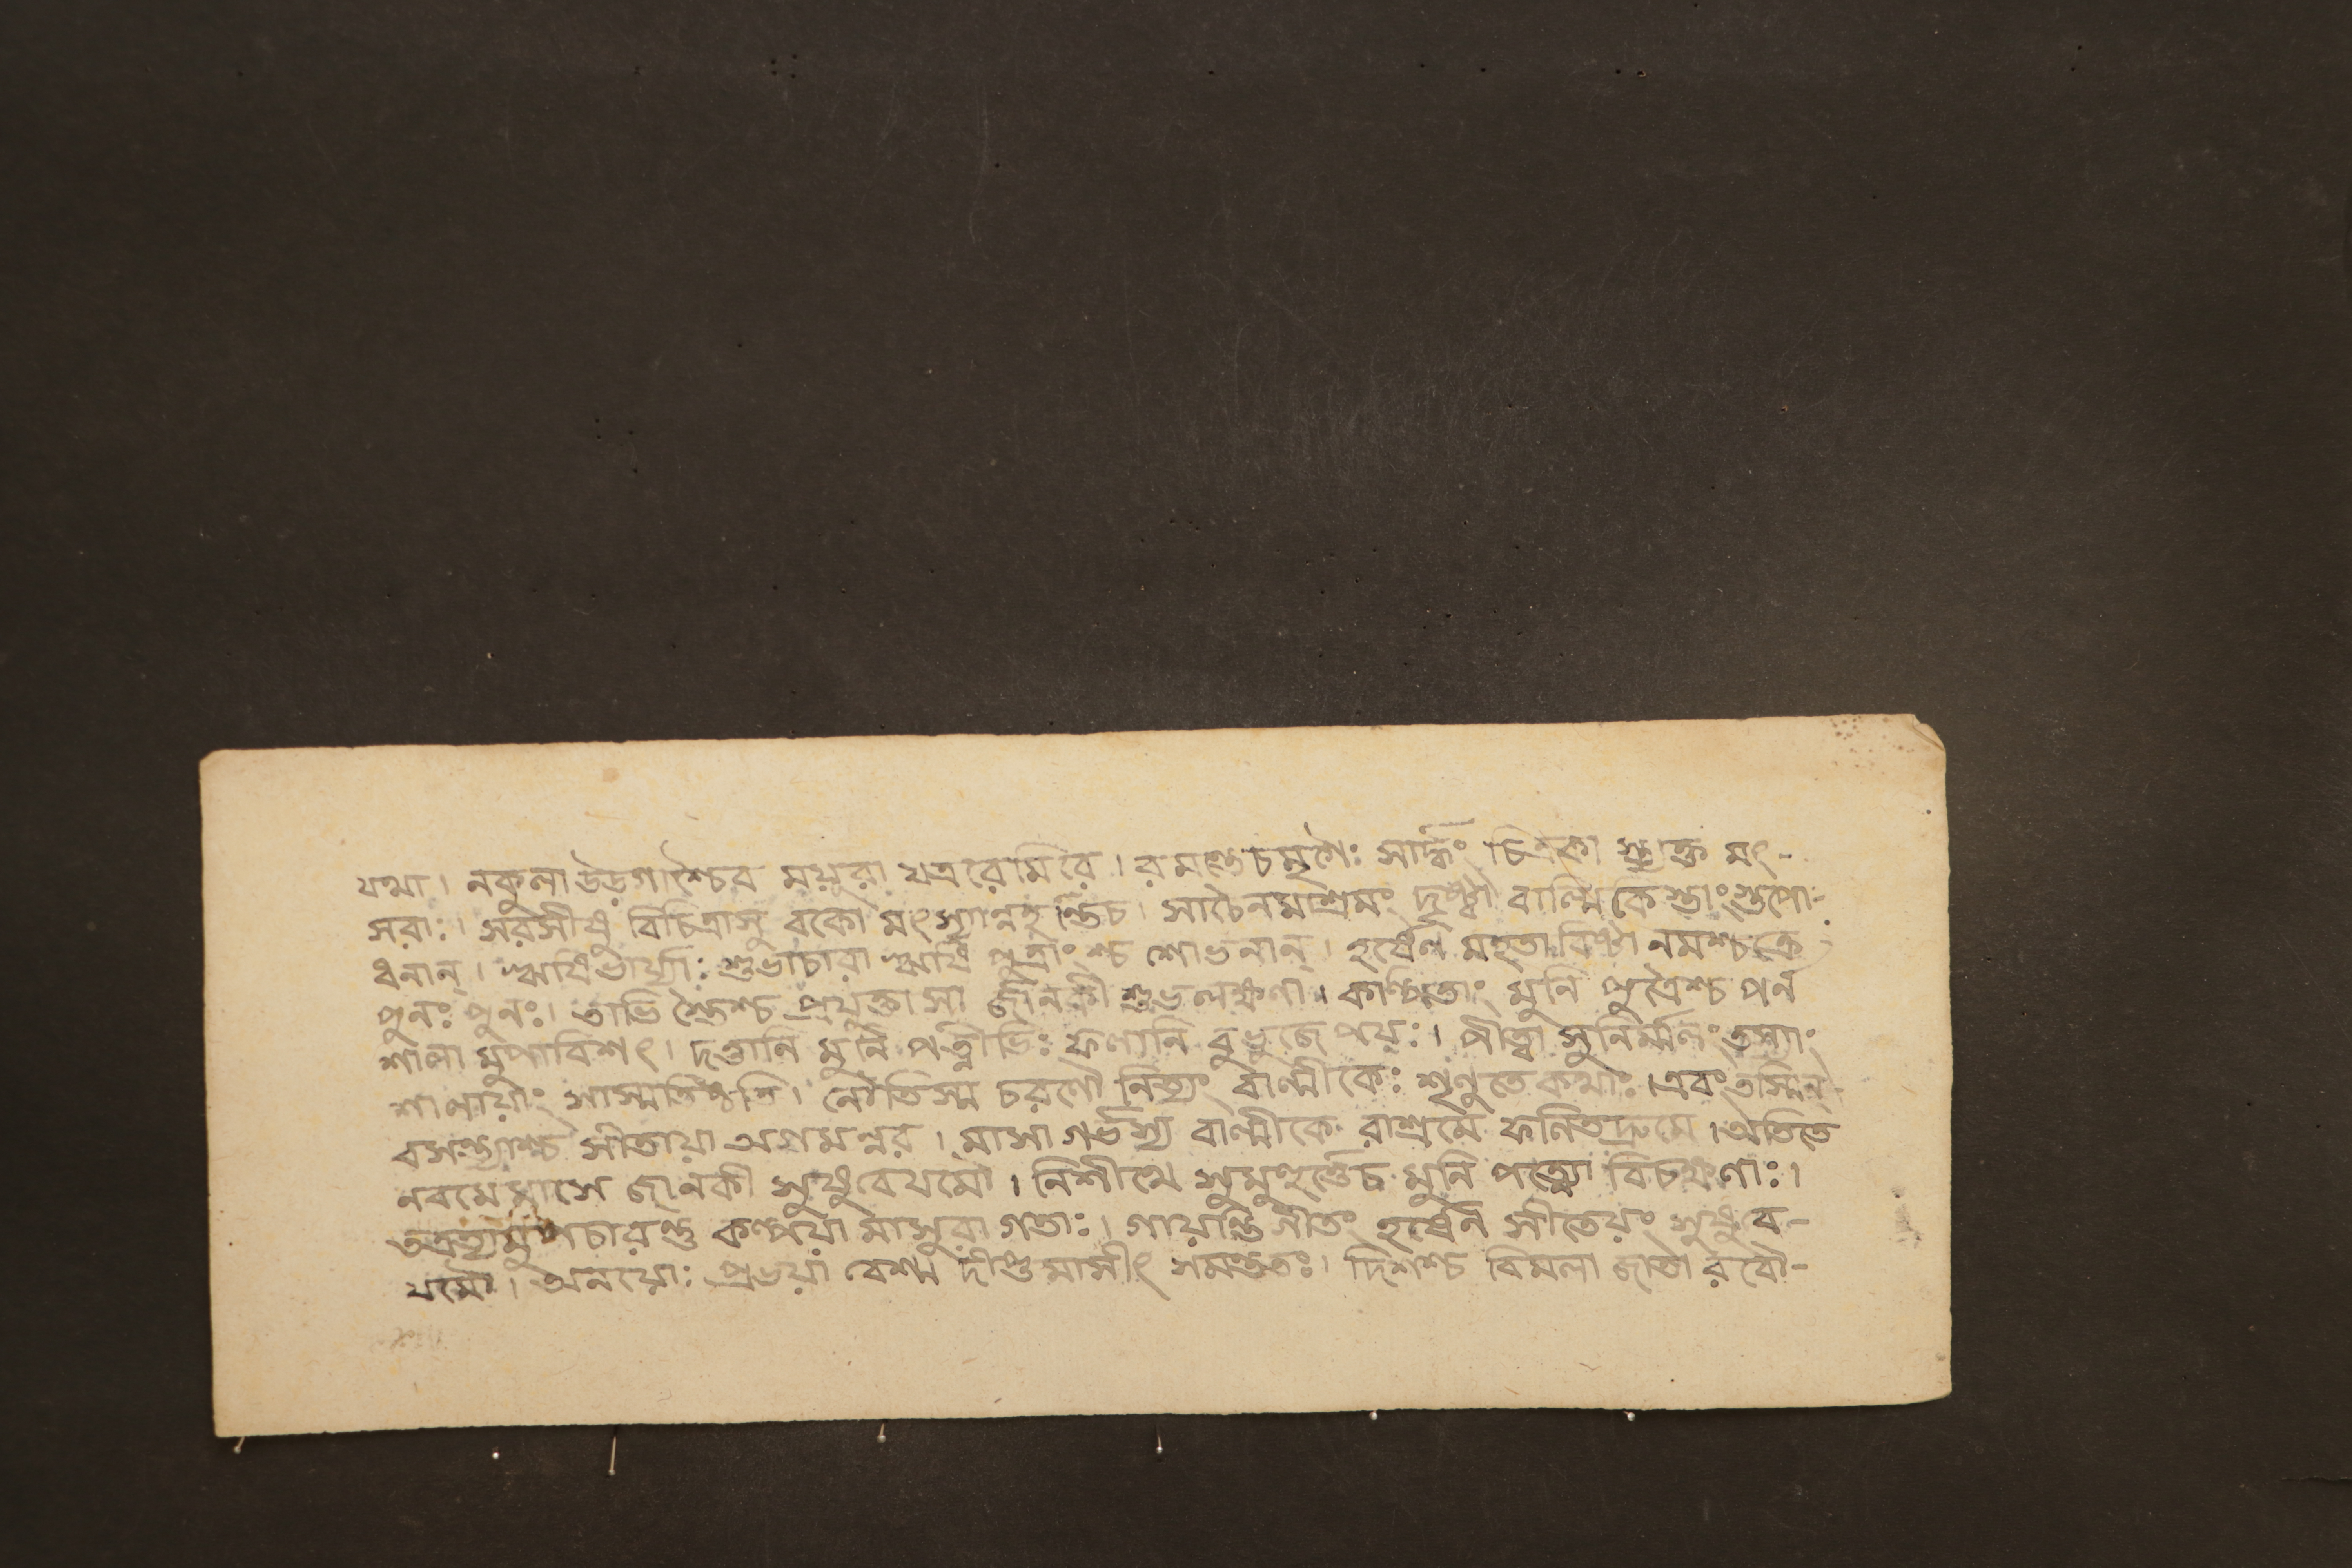 যত্মা। নকুলা উড়গাশ্চৈব ময়ূরা যত্ররেমিরে। রমন্তেচমৃগৈঃ সার্দ্ধং চিত্রকা মৎ-
সরাঃ। সরসীষু বিচিত্রাসু বকো মৎস্যান্নহন্তিচ। সাচৈনমাশ্রমং দৃষ্ট্বা বাল্মিকিস্তাংস্তপো-
ধনান্। ঋষিভার্য্যাঃ শুভাচারা ঋষি পুত্রাংশ্চ শোভনান্। হর্ষেণ মহতাবিষ্টা নমশ্চক্রে
পুনঃ পুনঃ। তাভি স্তৈশ্চ প্রযুক্তা সা জানকী শুভলক্ষণা। মুনি পুত্রৈশ্চ পর্ন
শালা মুপাবিশৎ। দত্তানি মুনি পত্নীভিঃ ফলানি বুভুজে পয়ঃ। পীত্বা সুনির্ম্মলং তস্যাং
শালায়াং সাস্মতিষ্ঠতি। নৌতিস্ম চরণৌ নিত্যং বাল্মীকেঃ শৃণুতে কথাং। এবং তস্মিন্-
বসন্ত্যাশ্চ সীতায়া অগমন্নর। মাসা গর্ভস্য বাল্মীকে রাশ্রমে ফলিতদ্রুমে। অতিতে
নবমে মাসে জানকী সুষুবেযমৌ। নিশীথে সুমুহূর্ত্তেচ মুনি পত্ন্যো বিচক্ষণাঃ।
তত্রত্যামুপচারন্তু কল্পয়া মাসুরা গতাঃ। গায়ন্তি গীতং হর্ষেন সীতেয়ং সুষুব-
যমৌ। অনয়োঃ প্রভয়া বেশ্ম দীপ্ত মাসীৎ সমন্ততঃ। দিশশ্চ বিমলা জাতা রবৌ-